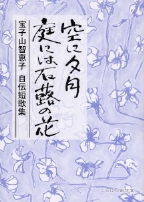 空に夕月
庭には石蕗の花
宝子山智恵子 自伝短歌集